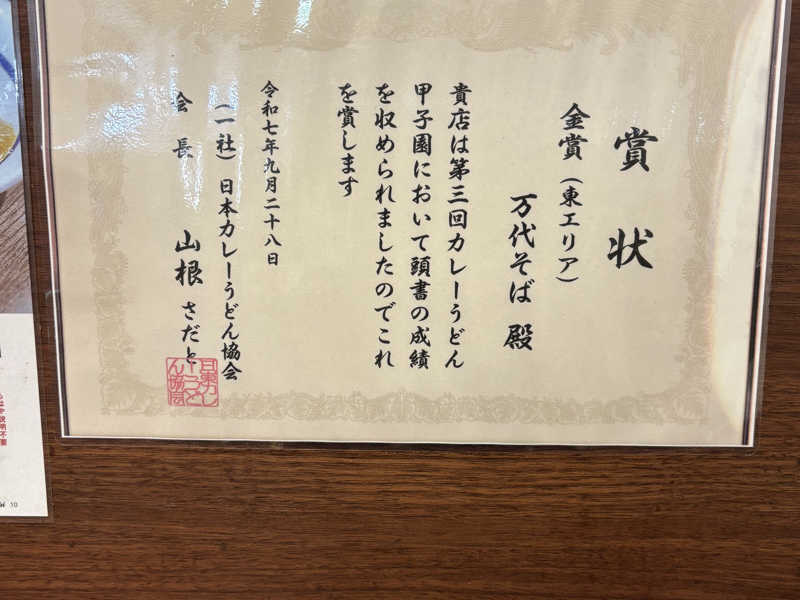 賞状
金賞（東エリア）
万代そば 殿
貴店は第三回カレーうどん
甲子園において頭書の成績
を収められましたのでこれ
を賞します
令和七年九月二十八日
（一社）日本カレーうどん協会
会長 山根 さだと
説明不要
10